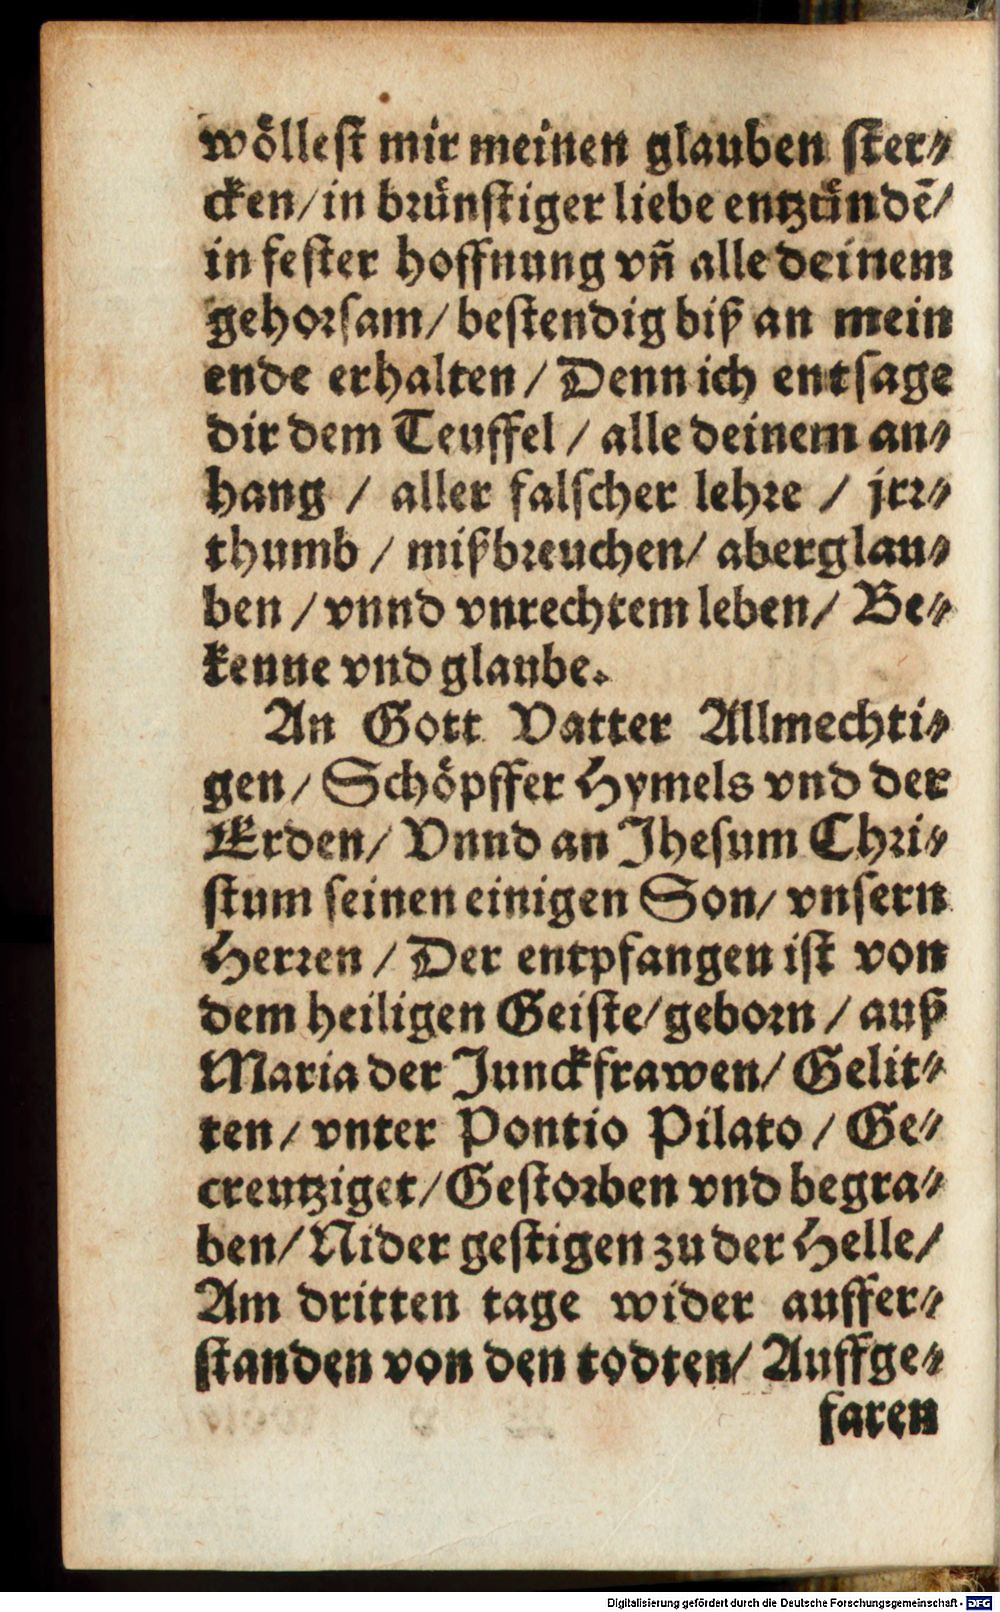 wöllest mir meinen glauben ster⸗
cken/in brünstiger liebe entzündē/
in fester hoffnung vñ alle deinem
gehorsam/ bestendig biß an mein
ende erhalten / Denn ich entsage
dir dem Teuffel / alle deinem an⸗
hang / aller falscher lehre / jrr⸗
thumb / mißbreuchen/ aberglau⸗
ben / vnnd vnrechtem leben/ Be⸗
kenne vnd glaube.
An Gott Vatter Allmechti⸗
gen/ Schöpffer Hymels vnd der
Erden/ Vnnd an Jhesum Chri⸗
stum seinen einigen Son/ vnsern
Herren / Der entpfangen ist von
dem heiligen Geiste/geborn / auß
Maria der Junckfrawen/ Gelit⸗
ten/ vnter Pontio Pilato / Ge⸗
creutziget/Gestorben vnd begra⸗
ben/ Nider gestigen zu der Helle/
Am dritten tage wider auffer⸗
standen von den todten/ Auffge⸗
faren
Digitalisierung gefördert durch die Deutsche Forschungsgemeinschaft - DFG